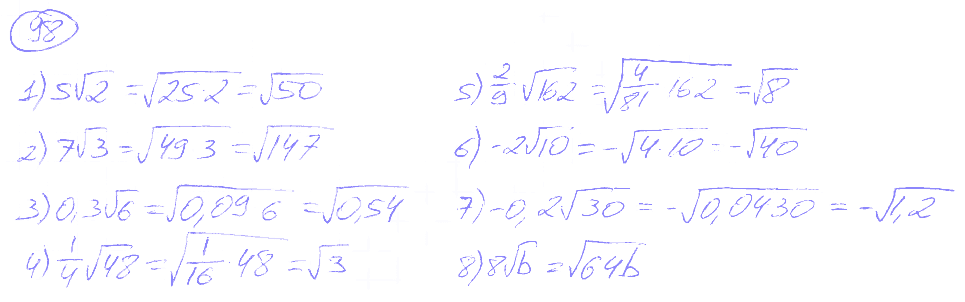 98
1) 5√2 = √25·2 = √50
2) 7√3 = √49 3 = √147
3) 0,3√6 = √0,09 6 = √0,54
4) 1/4 √48 = √1/16 · 48 = √3
5) 2/9 · √162 = √4/81 · 162 = √8
6) -2√10 = -√4·10 = -√40
7) -0,2√30 = -√0,04 30 = -√1,2
8) 8√b = √64b